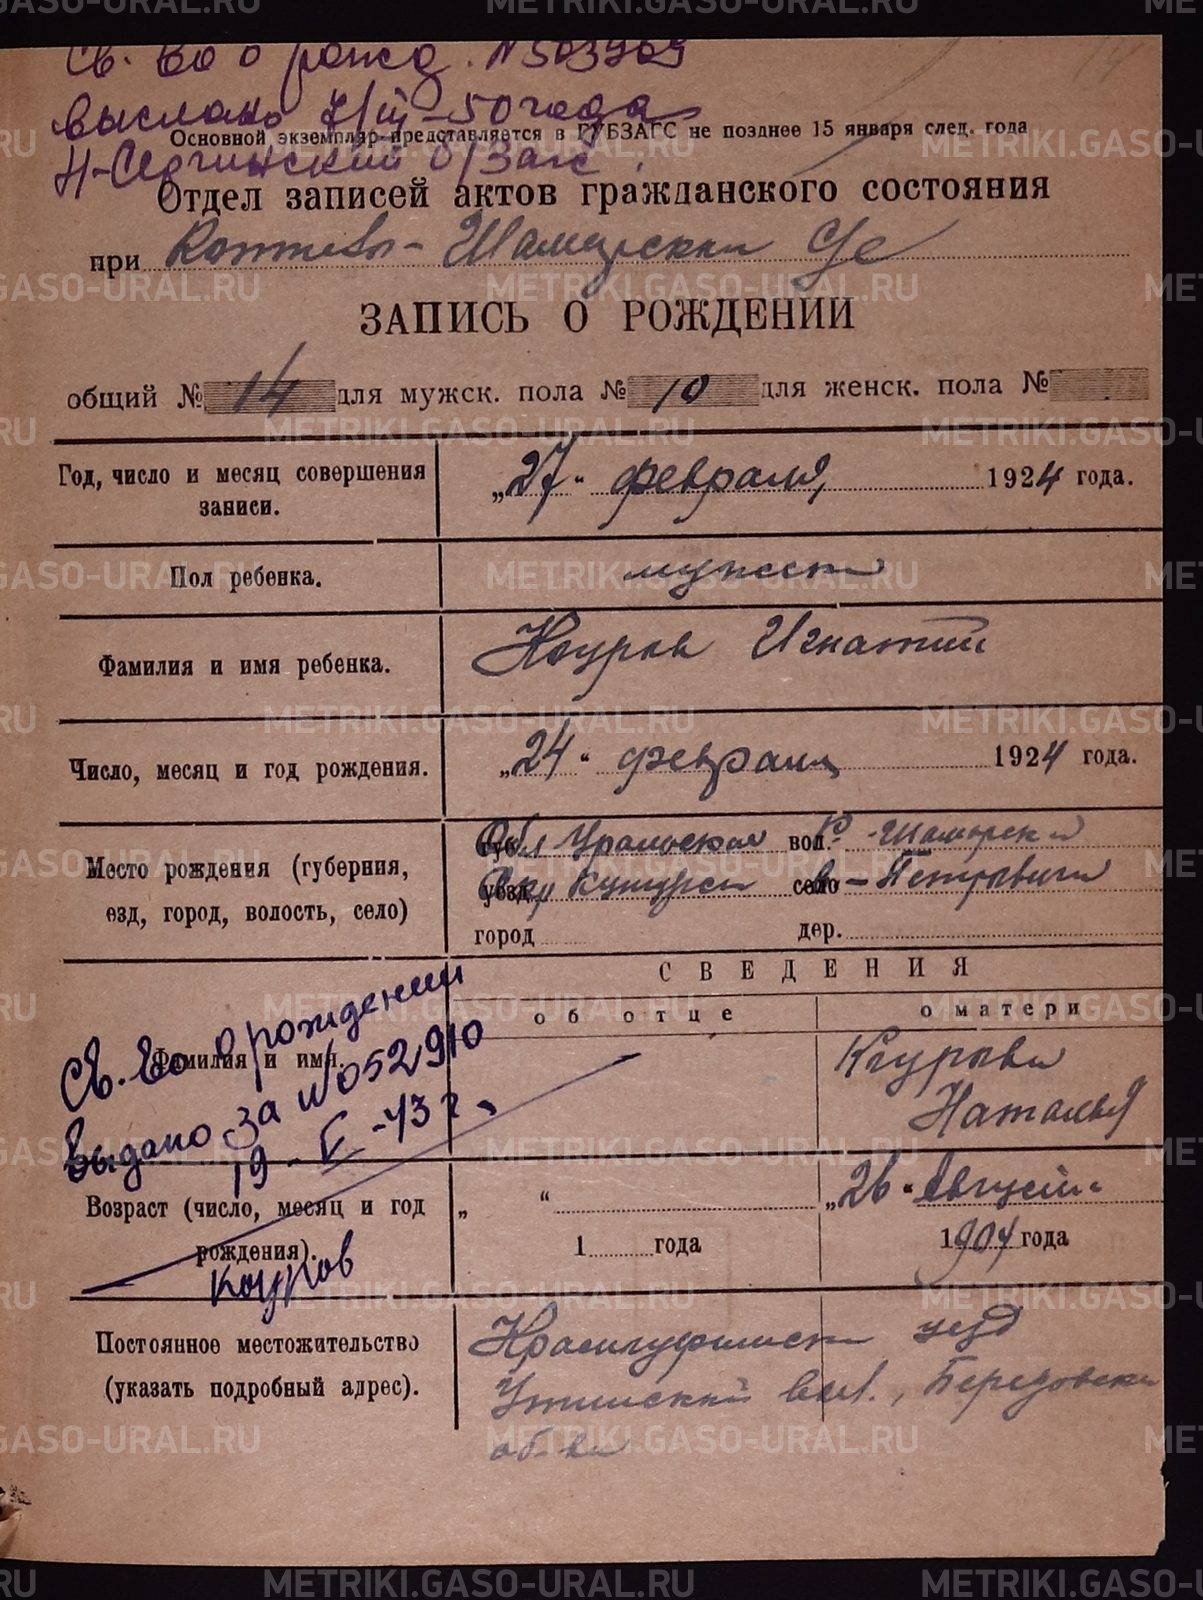 Св. во о рожд. № 503969
выслано 7/III-50 года
Основной экземпляр представляется в ГУБЗАГС не позднее 15 января след. года
Н-Сергинский о/Загс.
Отдел записей актов гражданского состояния
при Шамарском
ЗАПИСЬ О РОЖДЕНИИ
общий № 14 для мужск. пола № 10 для женск. пола №
Год, число и месяц совершения записи. „27“ февраля, 1924 года.
Пол ребенка. мужск
Фамилия и имя ребенка. Коуров Игнатий
Число, месяц и год рождения. „24“ февраля 1924 года.
Место рождения (губерния, езд, город, волость, село)
Обл Уральская вол. Р-Шамарская
Окр Кунгурск село
город дер.
СВЕДЕНИЯ
об отце
о матери
Фамилия и имя.
Коурова
Наталья
Св. во о рождении
выдано за № 052910
19-V-43 г.
Возраст (число, месяц и год рождения).
„ “
1 года
„26“ Августа
1904 года
Коуров
Постоянное местожительство (указать подробный адрес).
Красноуфимск уезд
Уткинской вол., Березовск
об-ва
METRIKI.GASO-URAL.RU